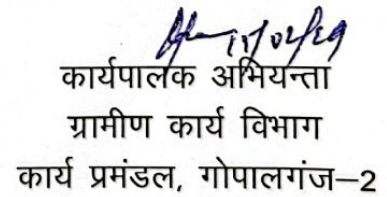 कार्यपालक अभियन्ता
ग्रामीण कार्य विभाग
कार्य प्रमंडल, गोपालगंज–2